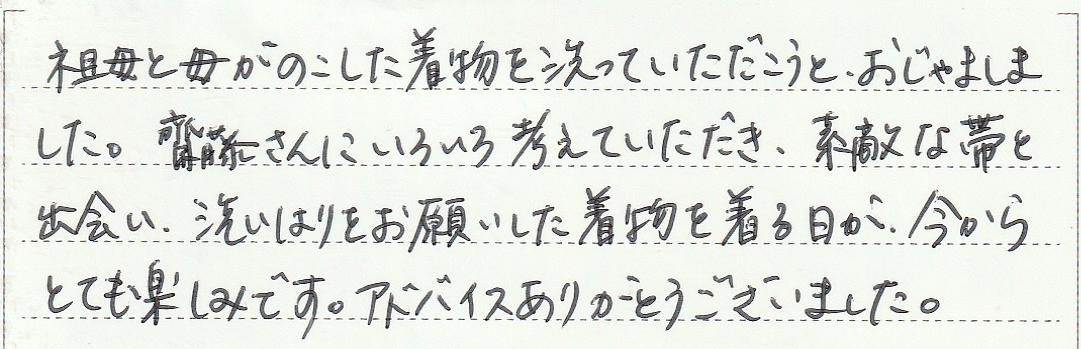 祖母と母がのこした着物を洗っていただこうと、おじゃましま
した。齋藤さんにいろいろ考えていただき、素敵な帯と
出会い、洗いはりをお願いした着物を着る日が、今から
とても楽しみです。アドバイスありがとうございました。